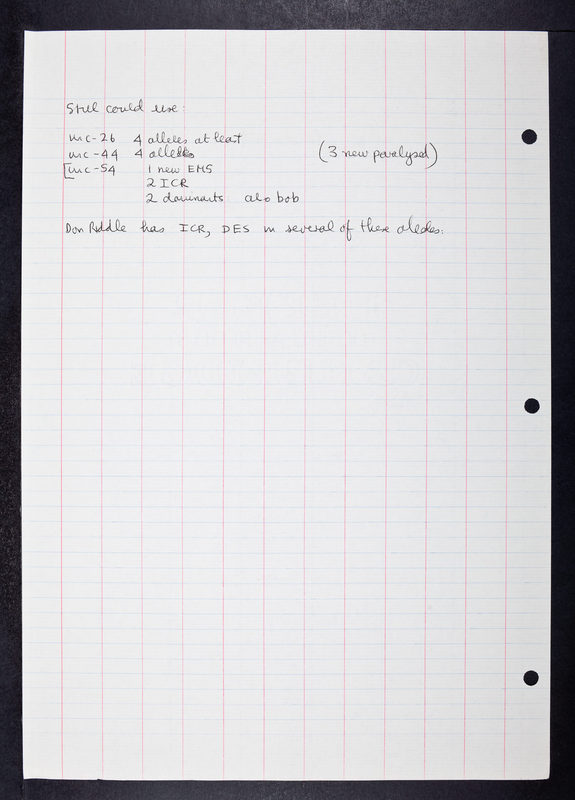 Still could use:
unc-26 4 alleles at least
unc-44 4 alleles (3 new paralysed)
[unc-54 1 new EMS
2 ICR
2 dominants also bob
Don Riddle has ICR, DES in several of these alleles.